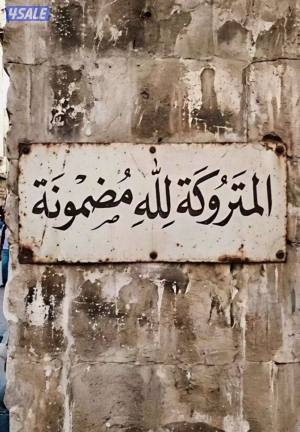 4SALE
المَتَروُكَة لِلّٰهِ مُضمونَة